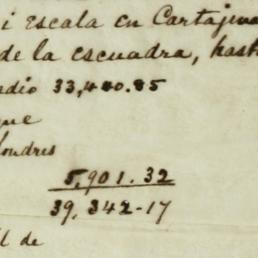 i Escala en Cartajena
de la escuadra, hast
dio 33,440.85
que
Londres
5,901.32
39,342-17
l de